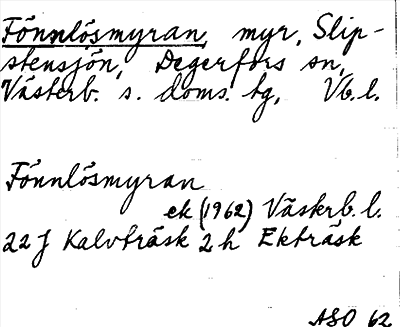 Fönnlösmyran, myr, Slip-
stensjön, Degerfors sn,
Västerb. s. doms. tg, Vb.l.
Fönnlösmyran
ek (1962) Västerb. l.
22 J Kalvträsk 2 h Ekträsk
ASO 62